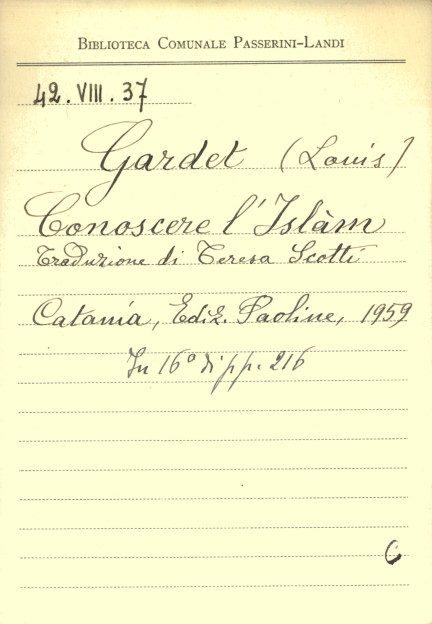 BIBLIOTECA COMUNALE PASSERINI-LANDI
42.VIII.37
Gardet (Louis)
Conoscere l'Islàm
Traduzione di Teresa Scotti
Catania, Ediz. Paoline, 1959
In 16º di pp. 216
C